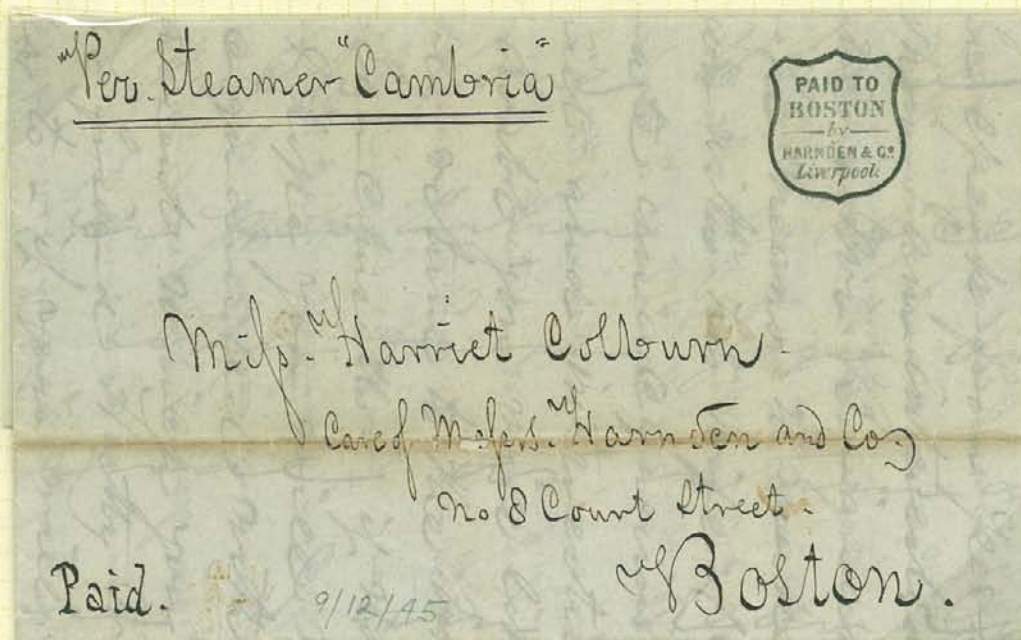 Per. Steamer "Cambria"
PAID TO
BOSTON
by
HARNDEN & Co
Liverpool.
Miſs. Harriet Colburn.
Care of Meſsrs. Harnden and Co,
No 8 Court Street.
Boston.
Paid.
9/12/45